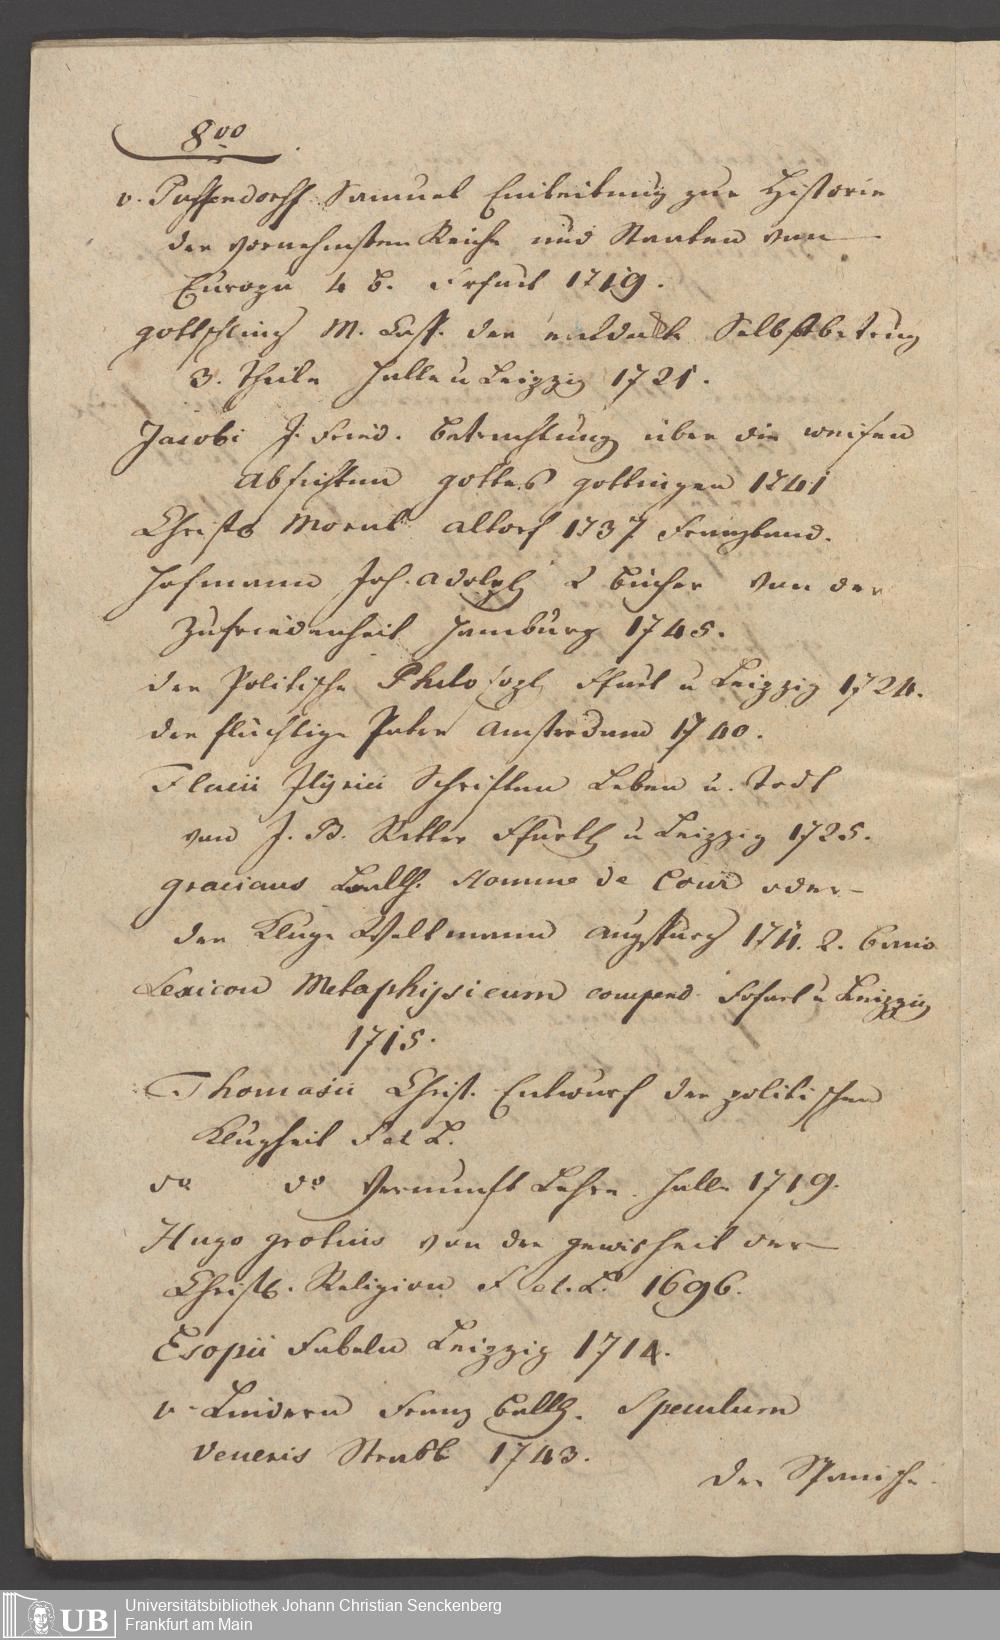 8vo
v. Puffendorff Samuel Einleitung zur Historie
der vornehmsten Reiche und Staaten von
Europa 4 B. Frfurt 1719.
gottschling M. Casp. der entdeckte Selbstbetrug
3. Theile Halle u Leipzig 1721.
Jacobi J. Fried. Betrachtung über die weisen
absichten gottes gottingen 1741
Christs Moral altorf 1737. Franzband.
Hofmann Joh. adolph 2 Bücher von der
Zufriedenheit Hamburg 1745.
der Politische Philosoph Ffurt u Leipzig 1724.
der flüchtige Pater amsterdam 1740.
Flacii Jlyrici Schriften Leben u. Todt
von J. B. Ritter Ffurth u Leipzig 1725.
gracians Balth. Homme de Cour oder
der Kluge Weltmann augspurg 1711. 2. Band
Lexicon Metaphysicum compend. Frfurt u Leipzig
1715.
Thomasii Christ. Entwurf der politischen
Klugheit F et L.
do do Vernunft Lehre. Halle 1719.
Hugo grotius von der gewisheit der
Christl. Religion F et. L. 1696.
Esopii Fabeln Leipzig 1714.
v. Lindern Franz Balth. Speculum
Veneris Strasb 1743.
Der Spanische
UB
Universitätsbibliothek Johann Christian Senckenberg
Frankfurt am Main